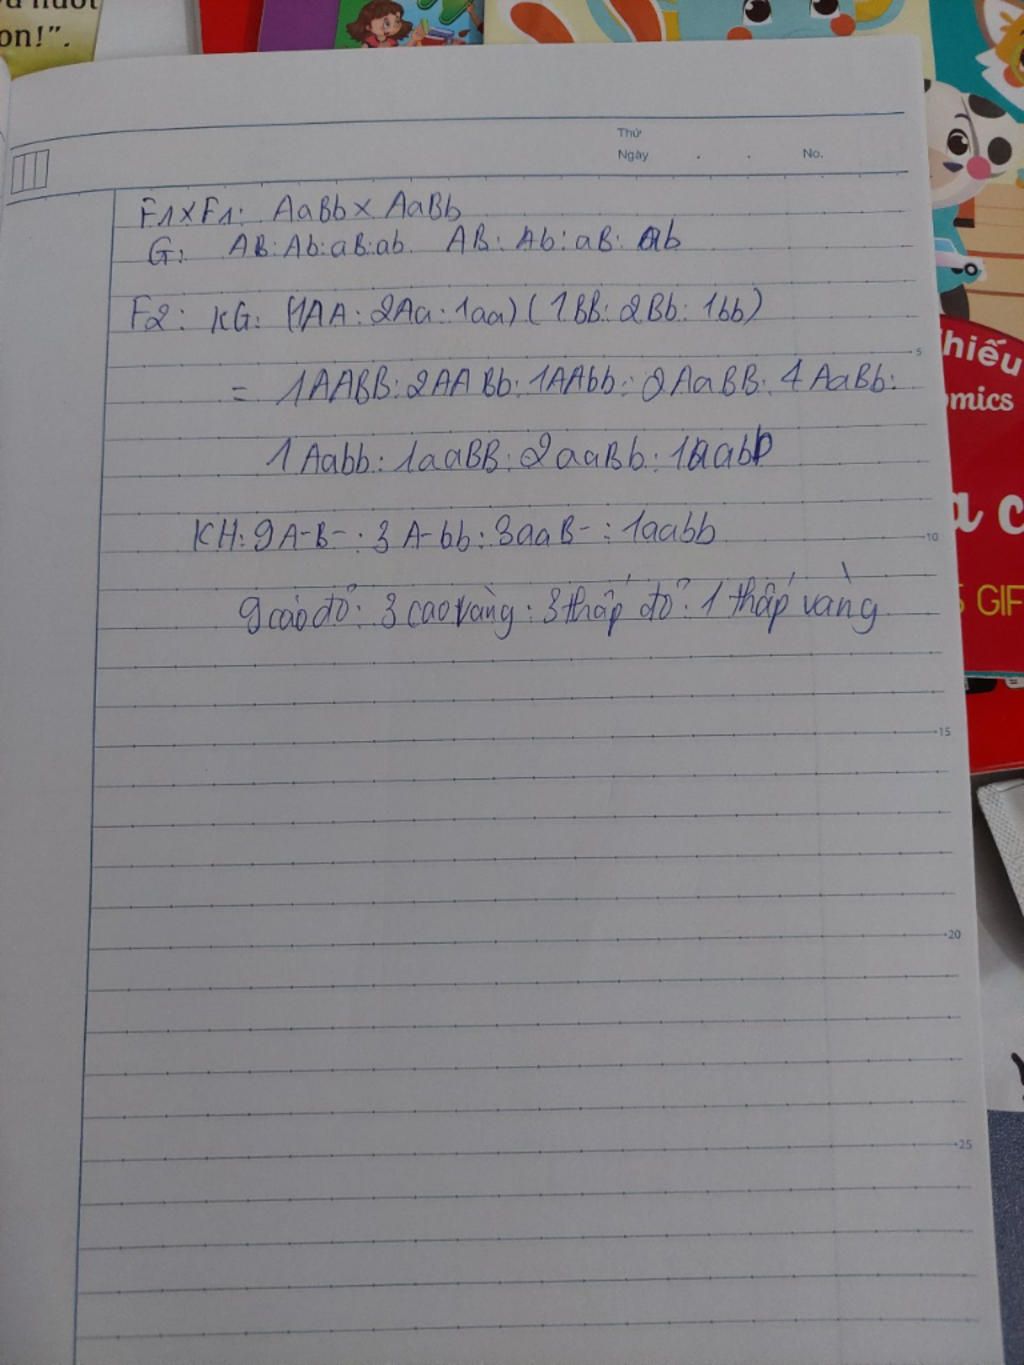 on!".
Thứ
Ngày . . No.
F1×F1: AaBb × AaBb
G: AB:Ab:aB:ab AB:Ab:aB:ab
F2: KG: (1AA:2Aa:1aa)(1BB:2Bb:1bb)
= 1AABB:2AABb:1AAbb:2AaBB:4AaBb:
1Aabb:1aaBB:2aaBb:1aabb
KH: 9A-B-:3A-bb:3aaB-:1aabb
9 cao đỏ: 3 cao vàng: 3 thấp đỏ: 1 thấp vàng
5
10
15
20
25
hiếu
mics
GIF